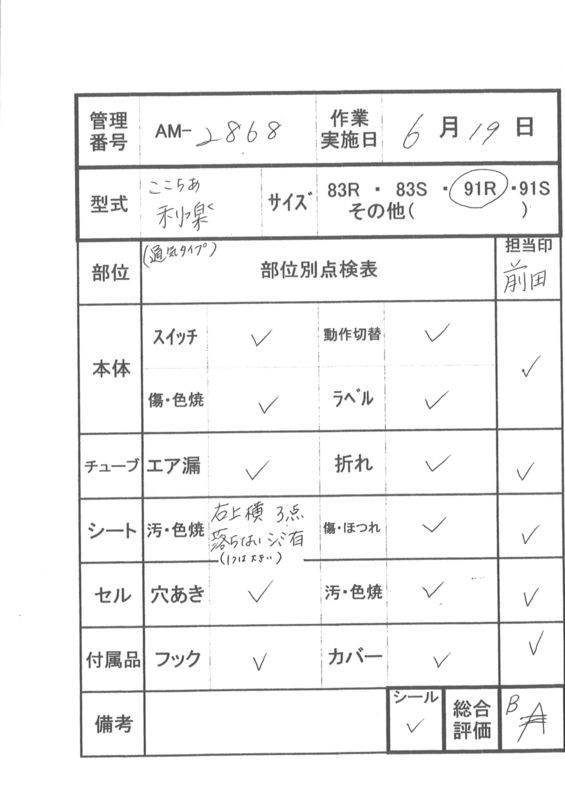 管理番号 AM-2868 作業実施日 6月19日
型式 ここちあ 利楽 (通気タイプ) サイズ 83R ・ 83S ・ 91R ・91S
その他( )
部位 部位別点検表 担当印 前田
本体 スイッチ ✓ 動作切替 ✓ ✓
傷・色焼 ✓ ラベル ✓
チューブ エア漏 ✓ 折れ ✓ ✓
シート 汚・色焼 右上横 3点 落ちないシミ有 (1つは大きい) 傷・ほつれ ✓ ✓
セル 穴あき ✓ 汚・色焼 ✓ ✓
付属品 フック ✓ カバー ✓ ✓
備考 シール ✓ 総合評価 B A